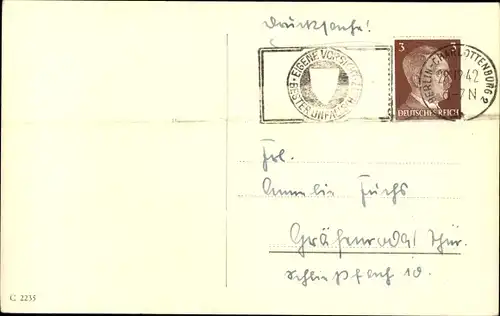 Drucksache!
EIGENE VORSICHT
BESTER UNFALLSCHUTZ
3 3
DEUTSCHES REICH
BERLIN-CHARLOTTENBURG 2
28.12.42
-7 N
Frl.
Annelie Fuchs
Gräfenroda/Thür.
Schließfach 10.
C 2235